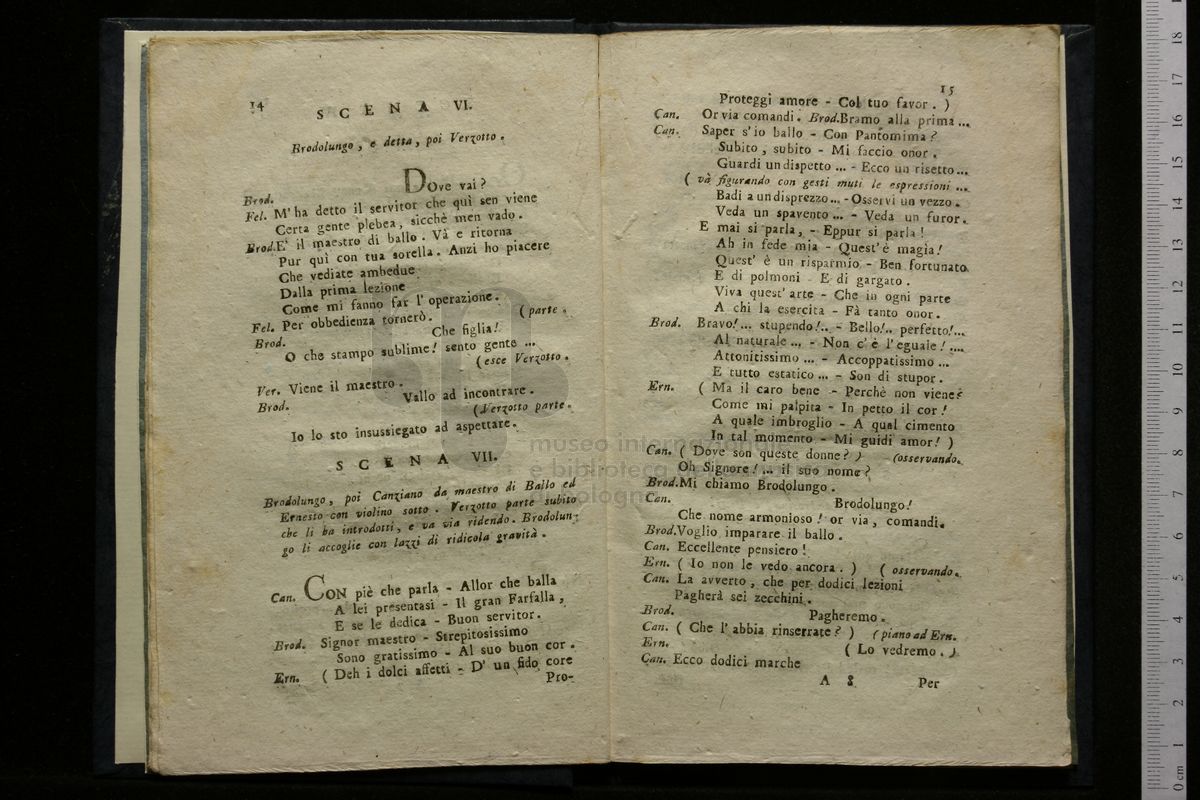 14
SCENA VI.
Brodolungo, e detta, poi Verzotto.
Brod. Dove vai?
Fel. M'ha detto il servitor che quì sen viene
Certa gente plebea, sicchè men vado.
Brod. E' il maestro di ballo. Và e ritorna
Pur quì con tua sorella. Anzi ho piacere
Che vediate ambedue
Dalla prima lezione
Come mi fanno far l'operazione.
Fel. Per obbedienza tornerò. (parte.
Brod. Che figlia!
O che stampo sublime! sento gente ...
(esce Verzotto.
Ver. Viene il maestro.
Brod. Vallo ad incontrare.
(Verzotto parte.
Io lo sto insussiegato ad aspettare.
SCENA VII.
Brodolungo, poi Canziano da maestro di Ballo ed
Ernesto con violino sotto. Verzotto parte subito
che li ha introdotti, e va via ridendo. Brodolun-
go li accoglie con lazzi di ridicola gravità.
Can. Con piè che parla - Allor che balla
A lei presentasi - Il gran Farfalla,
E se le dedica - Buon servitor.
Brod. Signor maestro - Strepitosissimo
Sono gratissimo - Al suo buon cor.
Ern. (Deh i dolci affetti - D' un fido core
Pro-
15
Proteggi amore - Col tuo favor. )
Can. Or via comandi. Brod. Bramo alla prima ...
Can. Saper s'io ballo - Con Pantomima?
Subito, subito - Mi faccio onor.
Guardi un dispetto ... - Ecco un risetto...
( và figurando con gesti muti le espressioni ...
Badi a un disprezzo ... - Osservi un vezzo.
Veda un spavento ... - Veda un furor.
E mai si parla, - Eppur si parla!
Ah in fede mia - Quest'è magia!
Quest' è un risparmio - Ben fortunato
E di polmoni - E di gargato.
Viva quest'arte - Che in ogni parte
A chi la esercita - Fà tanto onor.
Brod. Bravo!... stupendo!.. - Bello!.. perfetto!...
Al naturale ... - Non c'è l'eguale! ....
Attonitissimo ... - Accoppatissimo ...
E tutto estatico ... - Son di stupor.
Ern. ( Ma il caro bene - Perchè non viene?
Come mi palpita - In petto il cor!
A quale imbroglio - A qual cimento
In tal momento - Mi guidi amor! )
Can. ( Dove son queste donne? ) (osservando.
Oh Signore! ... il suo nome?
Brod. Mi chiamo Brodolungo.
Can. Brodolungo!
Che nome armonioso! or via, comandi.
Brod. Voglio imparare il ballo.
Can. Eccellente pensiero!
Ern. ( Io non le vedo ancora. ) ( osservando.
Can. La avverto, che per dodici lezioni
Pagherà sei zecchini.
Brod. Pagheremo.
Can. ( Che l'abbia rinserrate? ) (piano ad Ern.
Ern. ( Lo vedremo. )
Can. Ecco dodici marche
A 8 Per
museo internazionale
e biblioteca della
0 cm 1 2 3 4 5 6 7 8 9 10 11 12 13 14 15 16 17 18